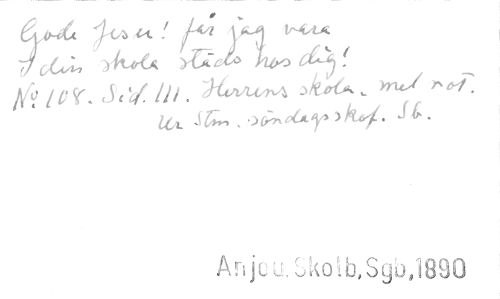 Gode Jesu! får jag vara
I din skola städs hos dig!
No. 108. Sid. 111. Herrens skola. mel not.
Ur Stm. söndagsskof. Sb.
Anjou, Skolb, Sgb, 1890